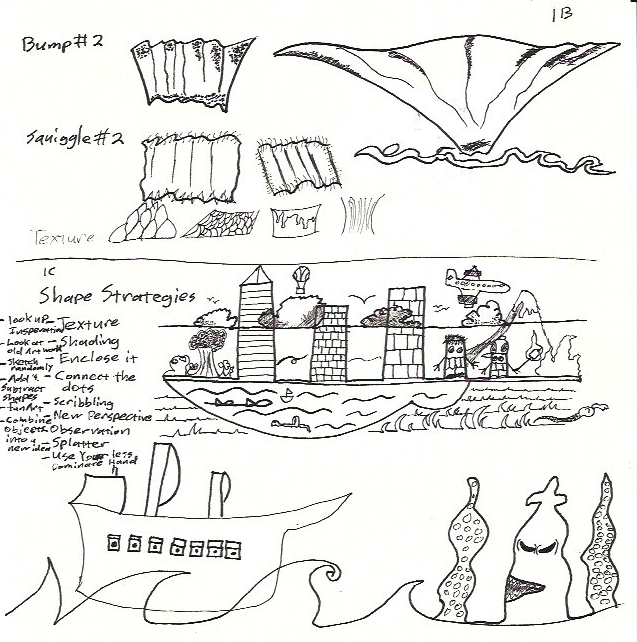 1B
Bump #2
Squiggle #2
Texture
1C
Shape Strategies
- look up Insperation
- Look at old Artwork
- Sketch randomly
- Add & Subtract shapes
- fan Art
- Combine objects into a new idea
- Texture
- Shading
- Enclose it
- Connect the dots
- Scribbling
- New Perspective
- Observation
- Splatter
- Use Your less Dominate Hand